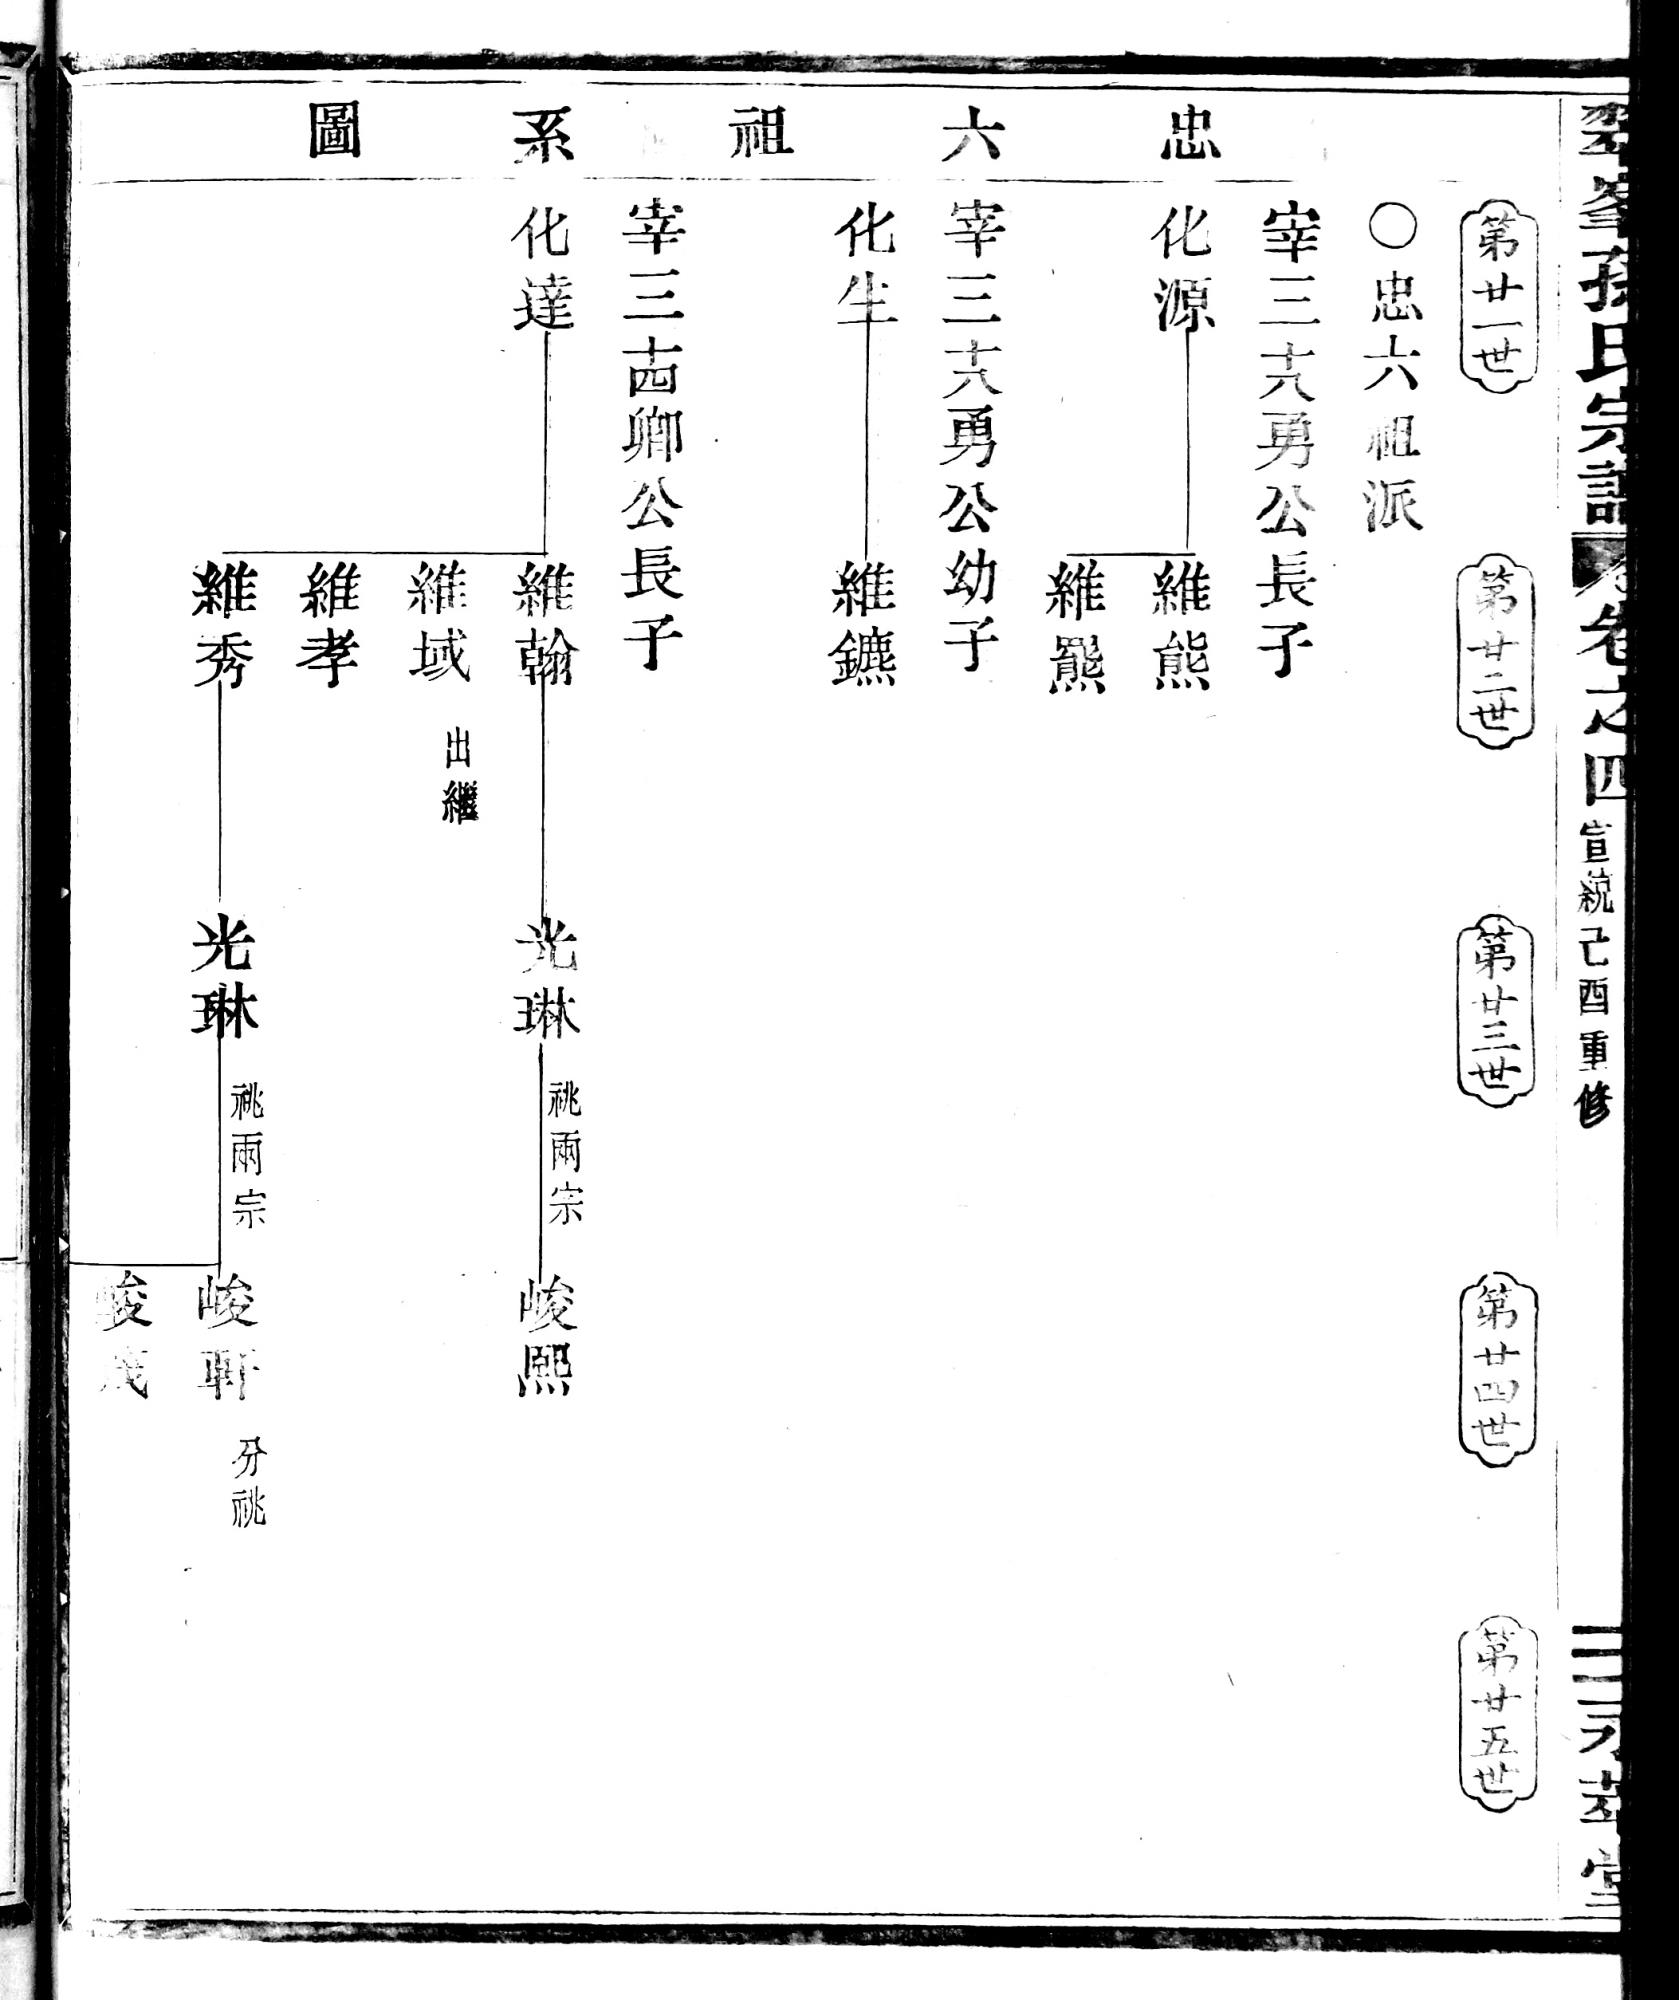 忠六祖系圖
第廿一世
第廿二世
第廿三世
第廿四世
第廿五世
〇忠六祖派
宰三六勇公長子
化源
維熊
維羆
宰三六勇公幼子
化生
維鑣
宰三十四卿公長子
化達
維翰
光琳 祧兩宗
峻熙
維域 出繼
維孝
維秀
光琳 祧兩宗
峻軒 分祧
孫氏宗譜
卷之四 宣統己酉重修
萃堂